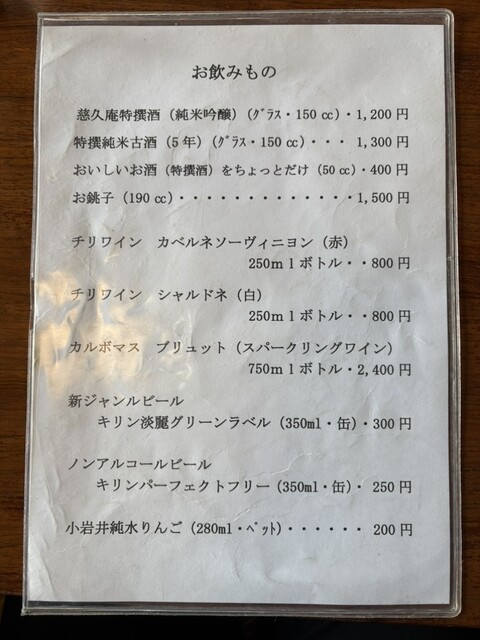 お飲みもの
慈久庵特撰酒（純米吟醸）（ｸﾞﾗｽ・150 ㏄）・1,200 円
特撰純米古酒（5 年）（ｸﾞﾗｽ・150 ㏄）・・・ 1,300 円
おいしいお酒（特撰酒）をちょっとだけ（50 ㏄）・400 円
お銚子（190 ㏄）・・・・・・・・・・・・・1,500 円
チリワイン　カベルネソーヴィニヨン（赤）
250ｍｌボトル・・800 円
チリワイン　シャルドネ（白）
250ｍｌボトル・・800 円
カルボマス　ブリュット（スパークリングワイン）
750ｍｌボトル・2,400 円
新ジャンルビール
キリン淡麗グリーンラベル（350ml・缶）・300 円
ノンアルコールビール
キリンパーフェクトフリー（350ml・缶）・ 250 円
小岩井純水りんご（280ml・ﾍﾟｯﾄ）・・・・・・ 200 円